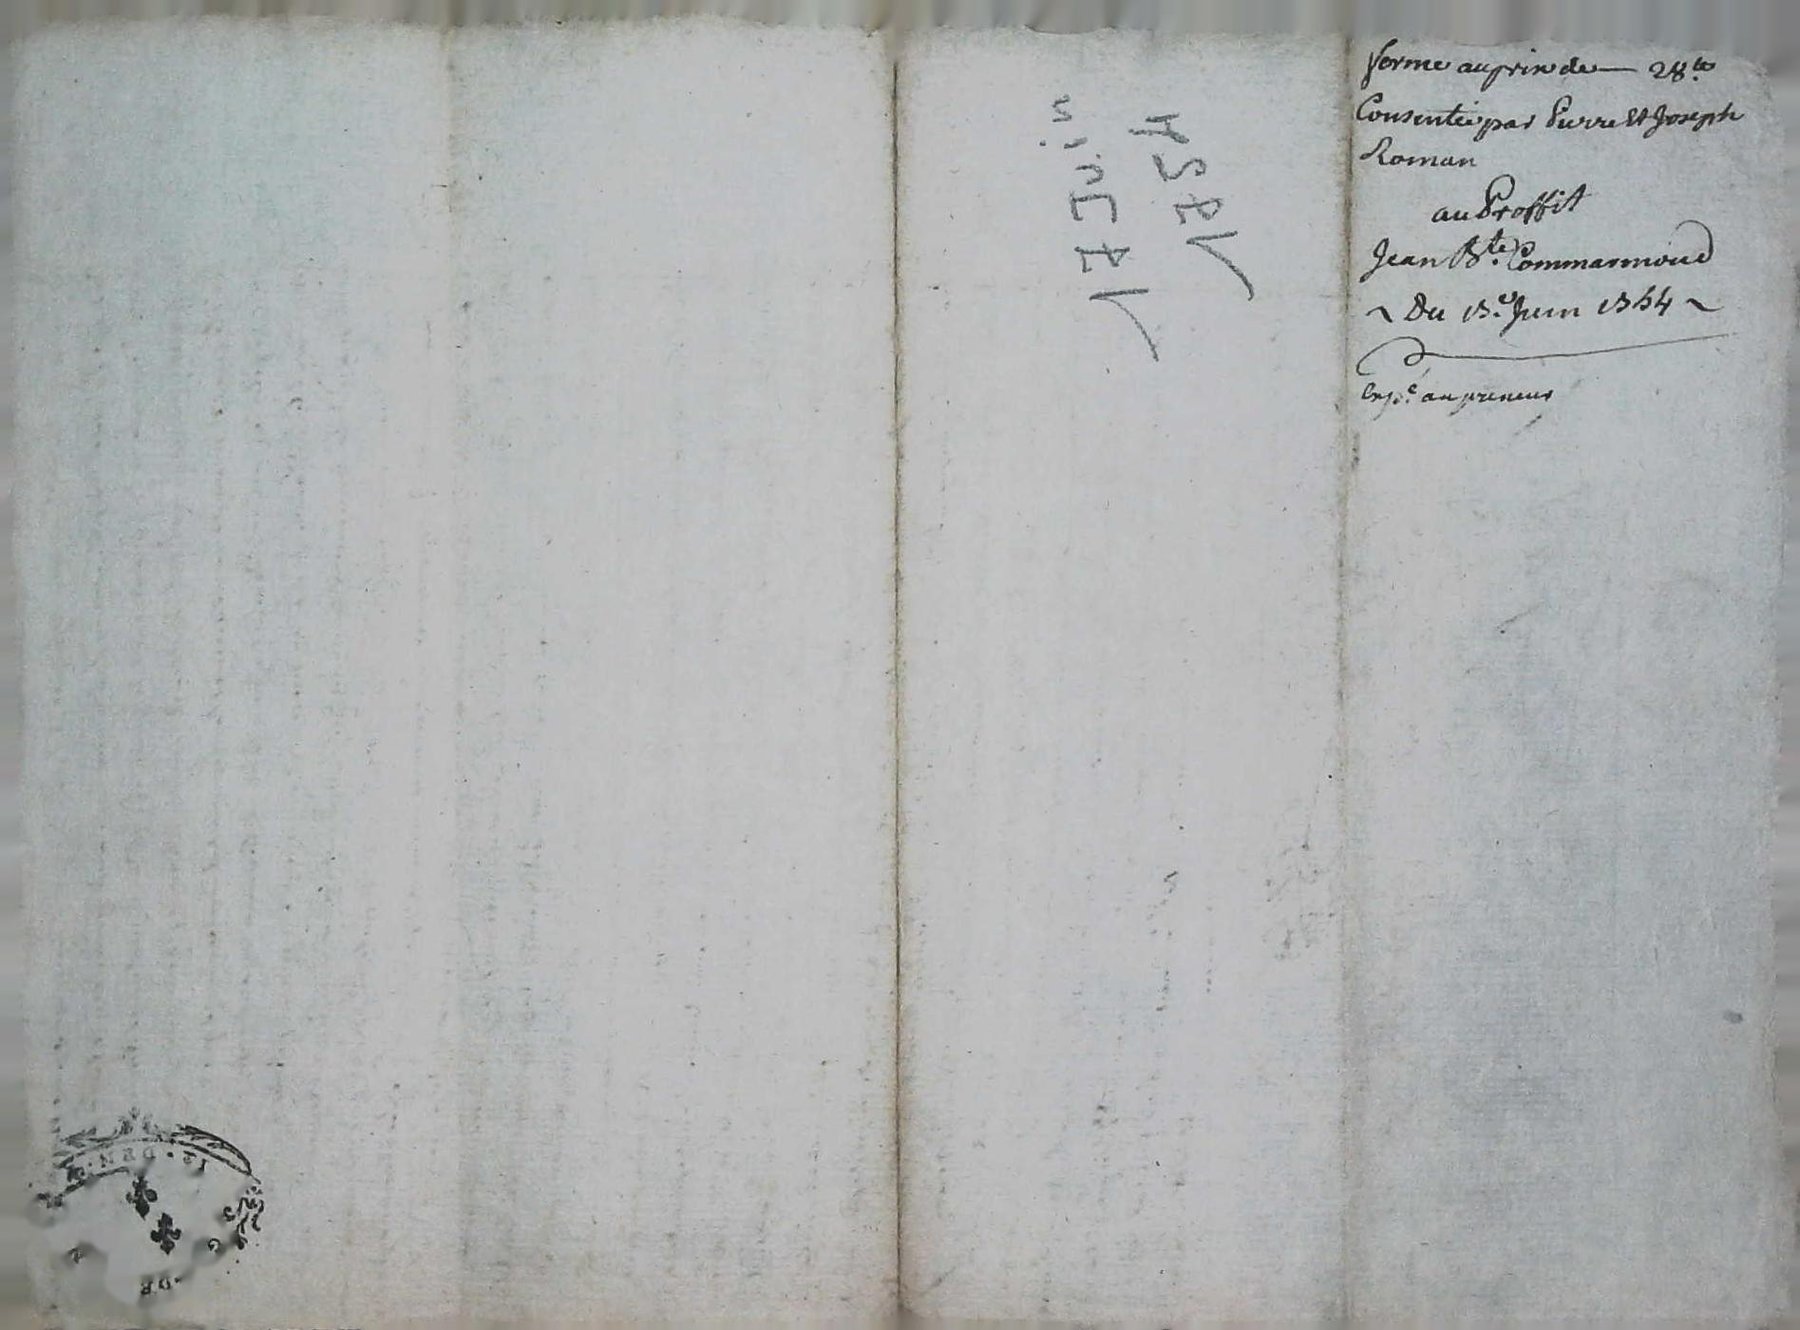 ferme au prix de — 28.tt
Consentie par Pierre Et Joseph
Roman
au Proffit
Jean Bte. Commarmond
~ Du 17.e Juin 1754 ~
Exp.e au preneur
17 Juin
1754
12. DEN.
G
DE